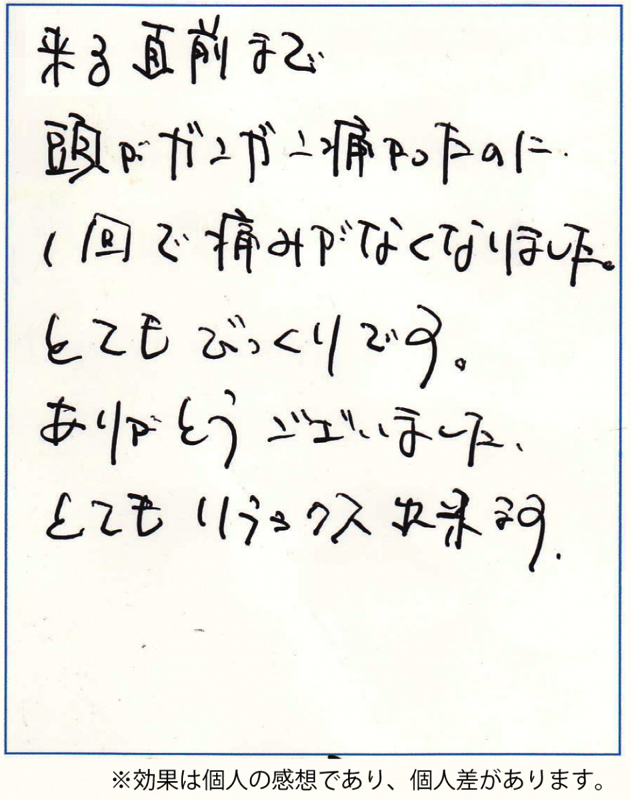 来る直前まで
頭がガンガン痛かったのに
1回で痛みがなくなりました。
とてもびっくりです。
ありがとうございました、
とてもリラックス出来ます.
※効果は個人の感想であり、個人差があります。